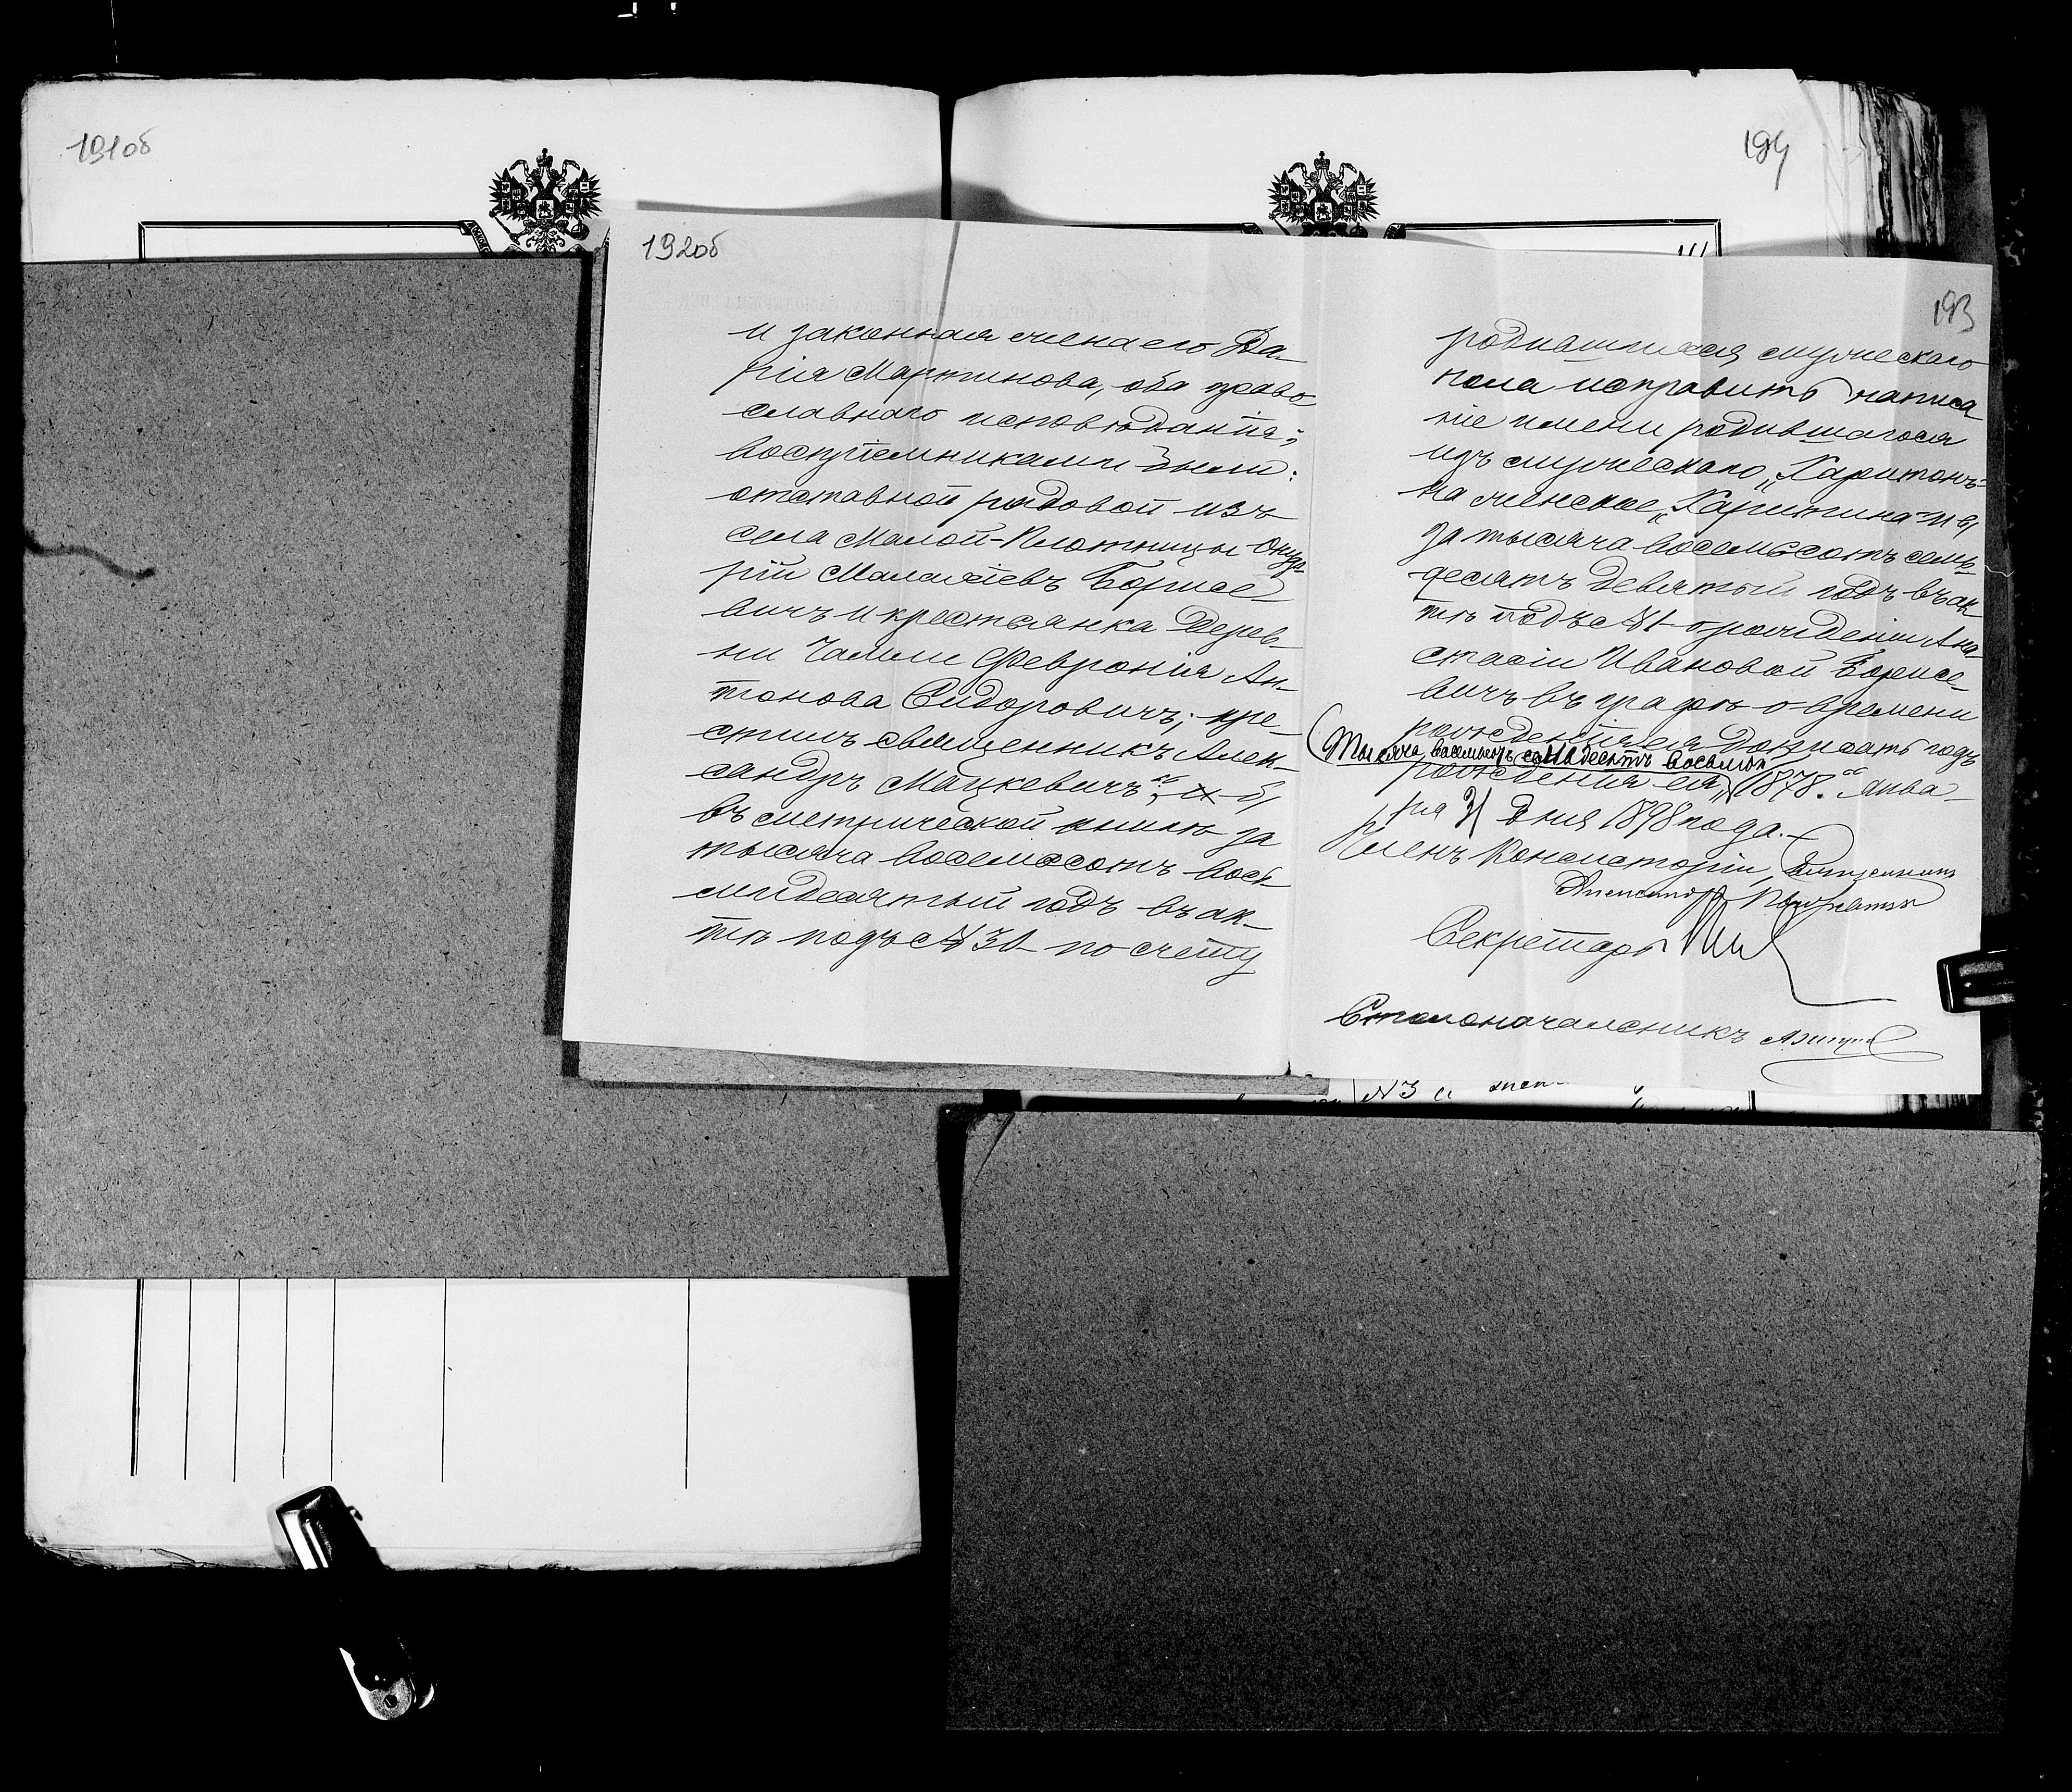 191об
194
192об
и законная жена его Да-
рія Мартинова, оба право-
славнаго исповѣданія;
воспріемниками были:
отставной рядовой изъ
села Малой-Плотницы Онуф-
рій Малахіевъ Борисе-
вичъ и крестьянка дерев-
ни Чамли Феврония Ан-
тонова Сидоровичъ; кре-
стилъ священникъ Алек-
сандръ Мацкевичъ"; б,
въ метрической книгѣ за
тысяча восемьсотъ вось-
мидесятый годъ въ ак-
тѣ подъ № 30 по счету
193
родившихся мужескаго
пола исправить написа
ніе имени родившагося
изъ мужескаго „Харитонъ"
на женское „Харитина" и в,
за тысяча восемьсотъ семь-
десятъ девятый годъ въ ак-
тѣ подъ № 1 о рожденіи Ана-
стасіи Ивановой Борисе-
вичъ въ графѣ о времени
рожденія ея дописать годъ
(тысяча восемьсотъ семьдесятъ восьмой
рожденія ея „1878". Янва-
ря 31 дня 1898 года.
Членъ Консисторіи, Священникъ
Александръ
Секретарь
Столоначальникъ
№3 и